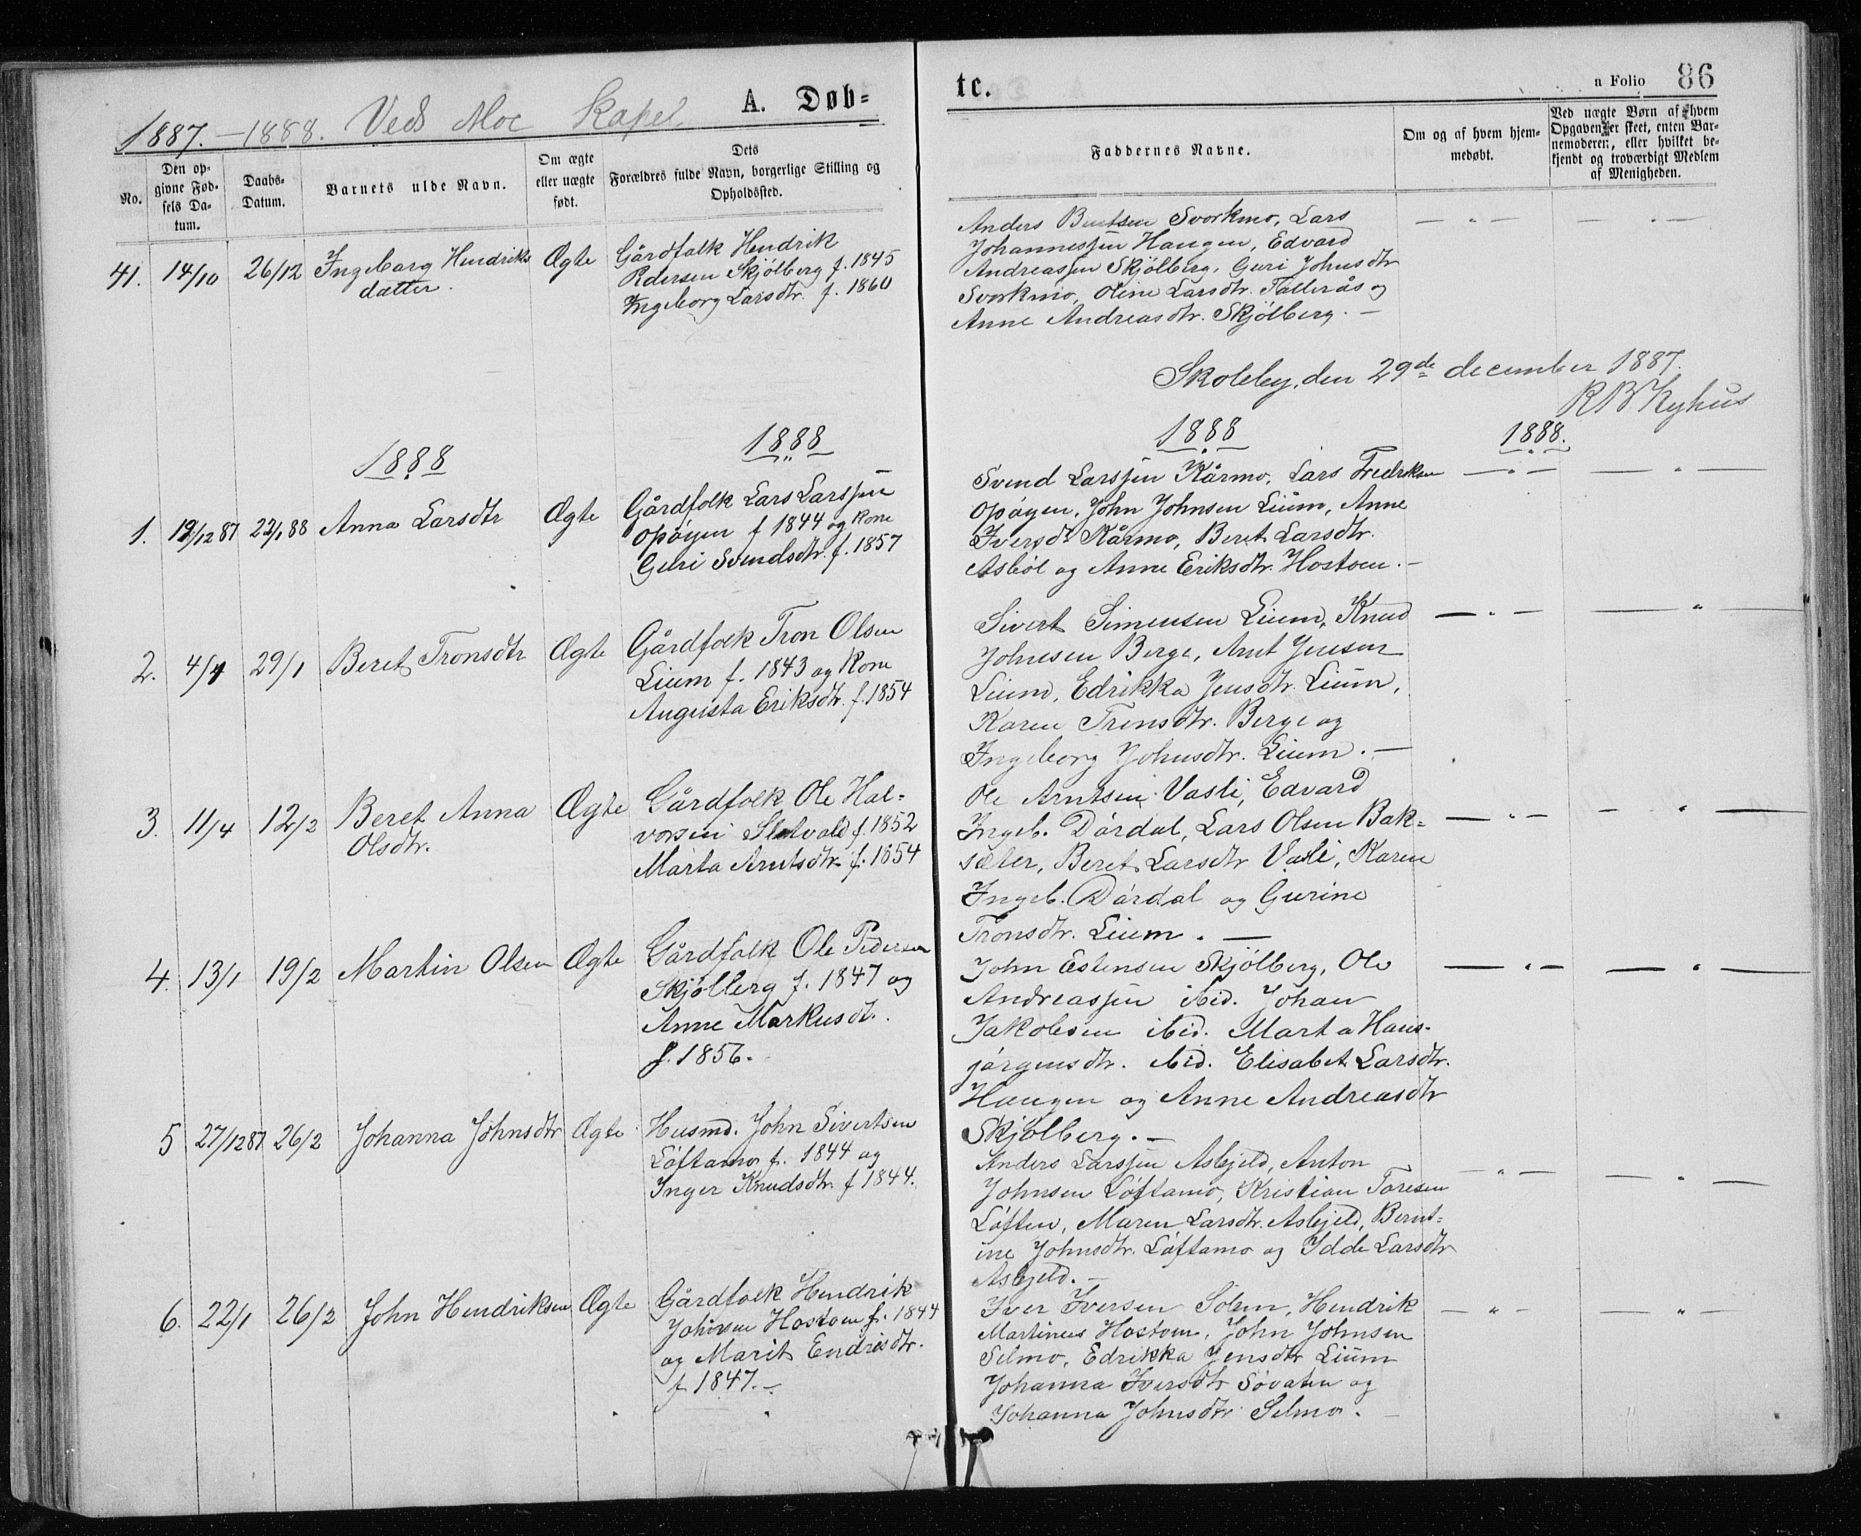 A. Døb=
tc.
n Folio 86
1887.-1888. Ved Moe Kapel
No.
Den op-
givne Fød-
sels Da-
tum.
Daabs-
Datum.
Barnets ulde Navn.
Om ægte
eller uægte
født.
Dets
Forældres fulde Navn, borgerlige Stilling og
Opholdssted.
Faddernes Navne.
Om og af hvem hjem-
medøbt.
Ved uægte Børn af hvem
Opgaven er skeet, enten Bar-
nemoderen, eller hvilket be-
kjendt og troværdigt Medlem
af Menigheden.
41. 14/10 26/12 Ingeborg Hendriks
datter.
Ægte
Gårdfolk Hendrik
Pedersen Skjølberg f. 1845
Ingeborg Larsdtr. f. 1860
Anders Svorkmo, Lars
Johannessen Haugen, Edvard
Andreassen Skjølberg, Guri Johnsdtr
Svorkmo, Oline Larsdtr. Fallerås og
Anne Andreasdtr. Skjølberg. —
— " — — " —
Skoleby, den 29de december 1887.
R B Kyhus
1888
1888
1888
1888.
1. 19/12 87 22/1 88 Anna Larsdtr Ægte
Gårdfolk Lars Larssen
Opøyen f 1844 og Kone
Guri Svendsdtr. f. 1857
Svend Larssen Kårmo, Lars Fredriksen
Opøyen, John Johnsen Lium, Anne
Iversdt Kårmo, Beret Larsdtr.
Asbøl og Anne Eriksdtr. Hostom. —
— " — — " —
2. 4/1 29/1 Beret Tronsdtr Ægte
Gårdfolk Tron Olsen
Lium f. 1843 og Kone
Augusta Eriksdtr. f. 1854
Sivert Simensen Lium, Knud
Johnsen Berge, Arnt Jensen
Lium, Edrikka Jensdtr. Lium,
Karen Tronsdtr. Berge og
Ingeborg Johnsdtr. Lium. —
— " — — " —
3. 11/4 12/2 Beret Anna
Olsdtr.
Ægte
Gårdfolk Ole Hal-
vorsen Sletvold f. 1852
Marta Arntsdtr. f. 1854
Ole Arntsen Vasli, Edvard
Ingeb. Dørdal, Lars Olsen Bak-
sæter, Beret Larsdtr Vasli, Karen
Ingeb. Dørdal og Gurine
Tronsdtr. Lium. —
— " — — " —
4. 13/1 19/2 Martin Olsen Ægte
Gårdfolk Ole Pedersen
Skjølberg f. 1847 og
Anne Markusdt.
f. 1856.
John Estensen Skjølberg, Ole
Andreassen ibid. Johan
Jakobsen ibid. Marta Hans-
jørgensdtr. ibid. Elisabet Larsdtr.
Haugen og Anne Andreasdtr
Skjølberg. —
— " — — " —
5 27/12 87 26/2 Johanna Johnsdtr Ægte
Husmd. John Sivertsen
Løftamo f. 1844 og
Inger Knudsdtr. f 1844.
Anders Larssen Asbjeld, Anton
Johnsen Løftamo, Kristian Toresen
Løften, Maren Larsdtr. Asbjeld, Bernt-
ine Johnsdtr. Løftamo og Idde Larsdtr
Asbjeld. —
— " — — " —
6. 22/1 26/2 John Hendriksen Ægte
Gårdfolk Hendrik
Johnsen Hostom f. 1844
og Marit Endresdtr.
f 1847. —
Iver Iversen Solem, Hendrik
Martinus Hostom, John Johnsen
Selmo, Edrikka Jensdtr Lium
Johanna Iversdtr Søvaten og
Johanna Johnsdtr Selmo. —
— " — — " —